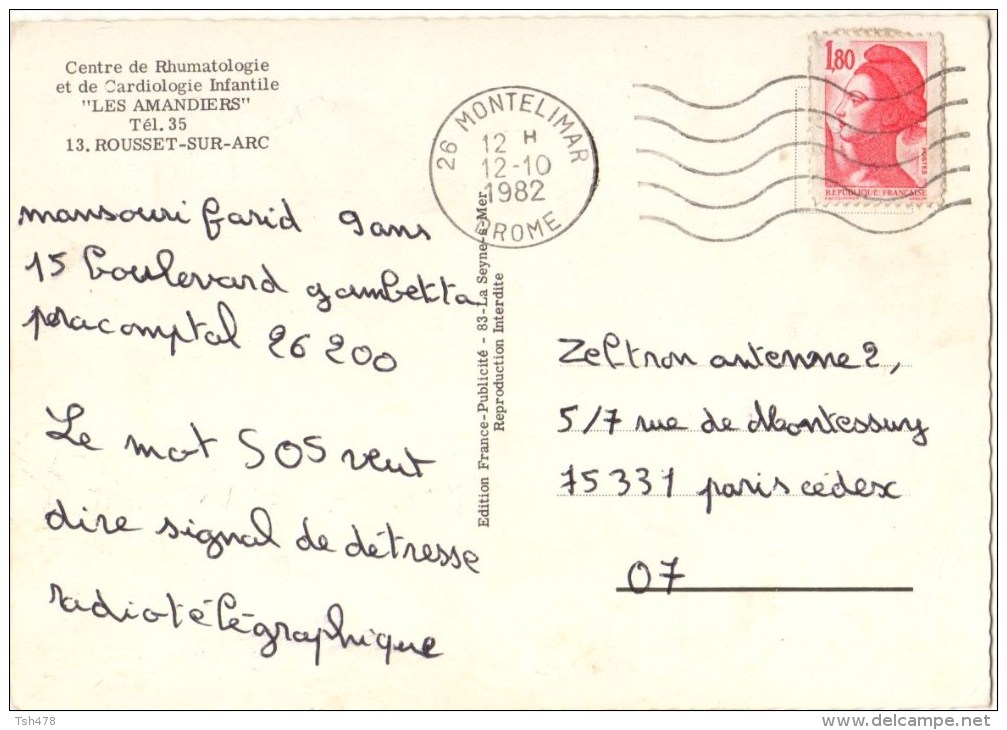 Centre de Rhumatologie
et de Cardiologie Infantile
"LES AMANDIERS"
Tél. 35
13. ROUSSET-SUR-ARC
mansouri farid 9 ans
15 boulevard gambetta
peracomptal 26 200
Le mot SOS veut
dire signal de détresse
radiotélégraphique
Edition France-Publicité - 83-La Seyne-s-Mer.
Reproduction Interdite
26 MONTELIMAR
12 H
12-10
1982
DROME
1,80
POSTES
REPUBLIQUE FRANÇAISE
Zeltron antenne 2,
5/7 rue de Montessuy
75331 paris cédex
07
Tsh478
www.delcampe.net